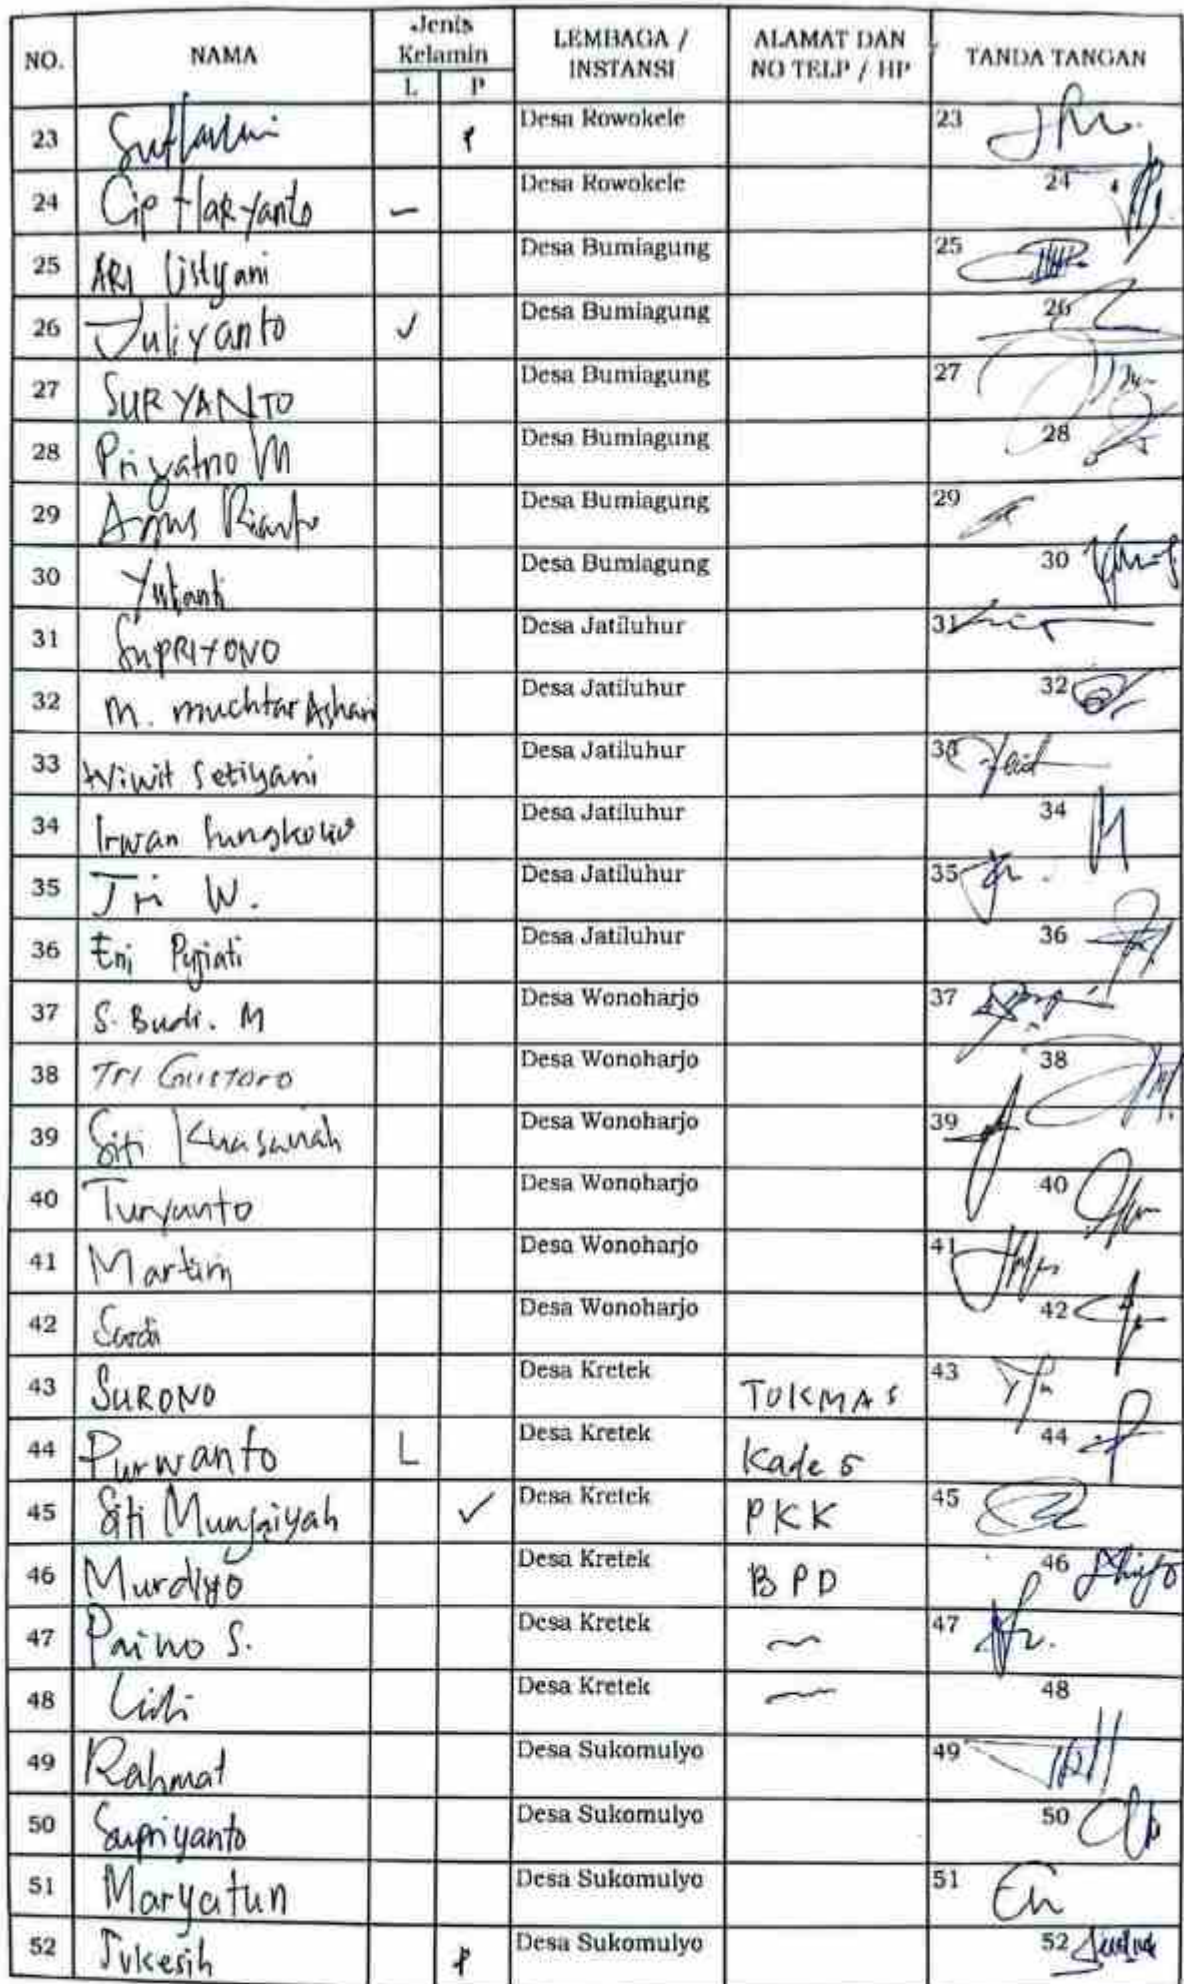 NO. NAMA Jenis Kelamin L P LEMBAGA / INSTANSI ALAMAT DAN NO TELP / HP TANDA TANGAN
23 P Desa Rowokele 23
24 Cip Haryanto – Desa Rowokele 24
25 ARI Listyani Desa Bumiagung 25
26 Juliyanto ✓ Desa Bumiagung 26
27 SURYANTO Desa Bumiagung 27
28 Priyatno M Desa Bumiagung 28
29 Agus Rianto Desa Bumiagung 29
30 Desa Bumiagung 30
31 SUPRIYONO Desa Jatiluhur 31
32 M. muchtar Ashari Desa Jatiluhur 32
33 Wiwit Setiyani Desa Jatiluhur 33
34 Irwan Sungkowo Desa Jatiluhur 34
35 Tri W. Desa Jatiluhur 35
36 Eni Pujiati Desa Jatiluhur 36
37 S. Budi. M Desa Wonoharjo 37
38 Tri Gustoro Desa Wonoharjo 38
39 Siti Khasanah Desa Wonoharjo 39
40 Turyanto Desa Wonoharjo 40
41 Martini Desa Wonoharjo 41
42 Sardi Desa Wonoharjo 42
43 SURONO Desa Kretek TUKMAS 43
44 Purwanto L Desa Kretek Kades 44
45 Siti Mungaiyah ✓ Desa Kretek PKK 45
46 Murdiyo Desa Kretek BPD 46
47 Paino S. Desa Kretek ~ 47
48 Desa Kretek ~ 48
49 Rahmat Desa Sukomulyo 49
50 Supriyanto Desa Sukomulyo 50
51 Maryatun Desa Sukomulyo 51
52 Sukesih P Desa Sukomulyo 52